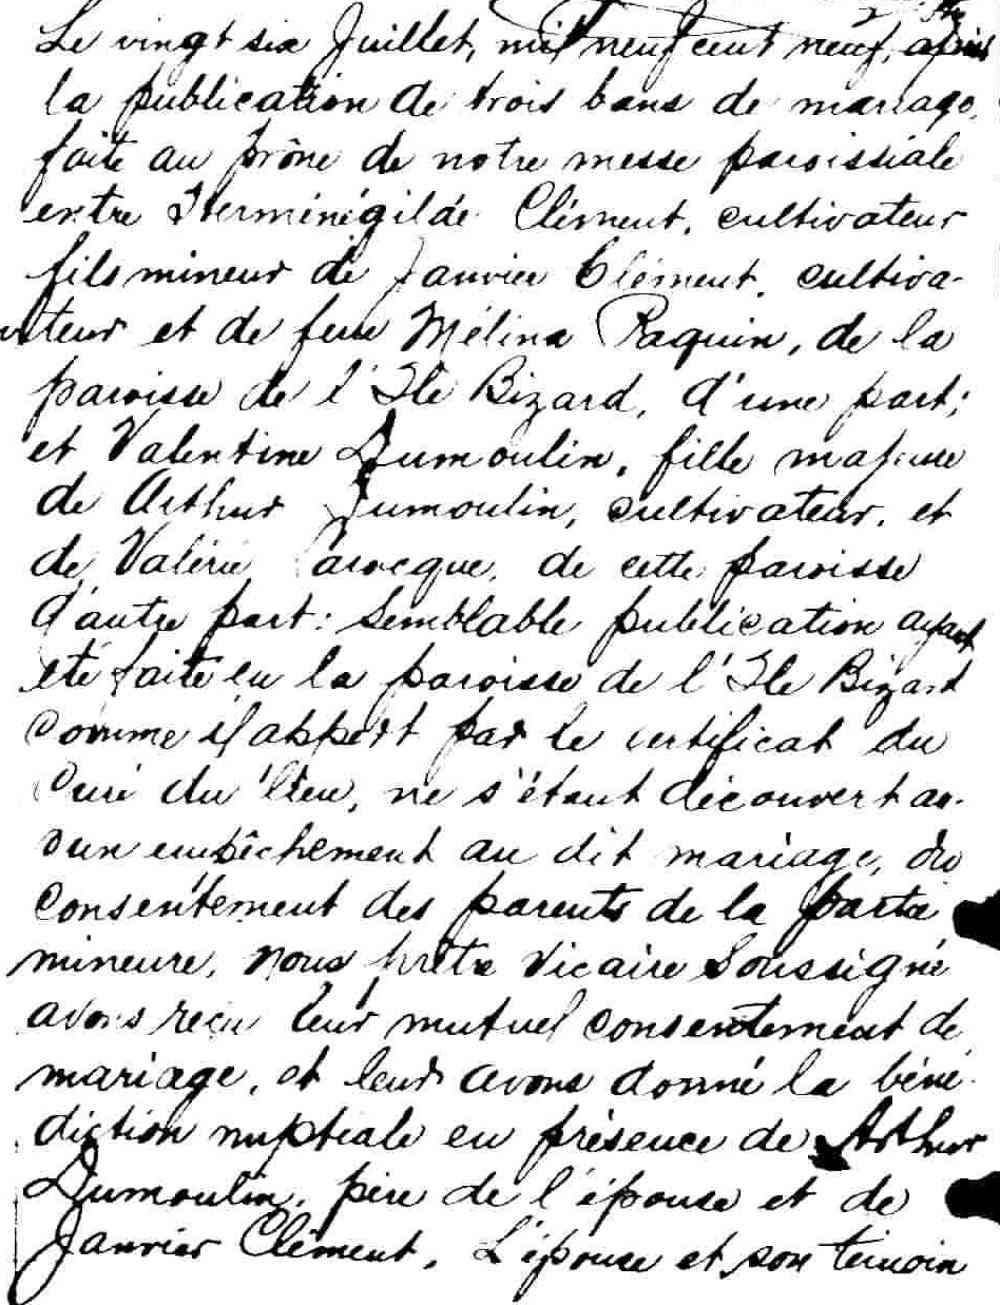 Le vingt six Juillet, mil neuf cent neuf, après
la publication de trois bans de mariage,
faite au prône de notre messe paroissiale
entre Herménégilde Clément, cultivateur
fils mineur de Janvier Clément, cultiva-
teur et de feue Mélina Paquin, de la
paroisse de l'Ile Bizard, d'une part;
et Valentine Dumoulin, fille majeure
de Arthur Dumoulin, cultivateur, et
de Valérie Larocque, de cette paroisse
d'autre part: Semblable publication ayant
été faite en la paroisse de l'Ile Bizard
comme il appert par le certificat du
Curé du lieu, ne s'étant découvert au-
cun empêchement au dit mariage, du
consentement des parents de la partie
mineure, nous prêtre Vicaire Soussigné
avons reçu leur mutuel consentement de
mariage, et leur avons donné la béné-
diction nuptiale en présence de Arthur
Dumoulin, père de l'épouse et de
Janvier Clément. L'épouse et son témoin